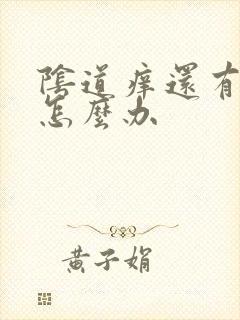 陰道痒還有
怎麼办
黄子娟